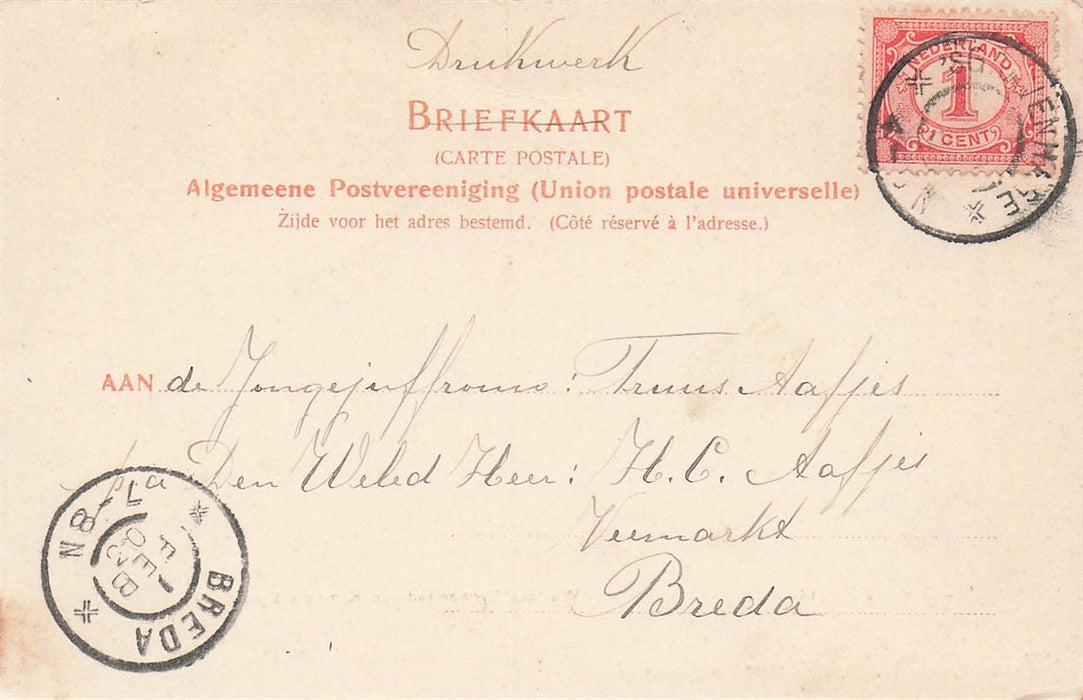 Drukwerk
BRIEFKAART
(CARTE POSTALE)
Algemeene Postvereeniging (Union postale universelle)
Zijde voor het adres bestemd. (Côté réservé à l'adresse.)
NEDERLAND
1
1 CENT
AAN de Jongejuffrouw: Truus Aafjes
p/a Den Weled Heer: H. C. Aafjes
Veemarkt
Breda
BREDA
7-8N
FEB